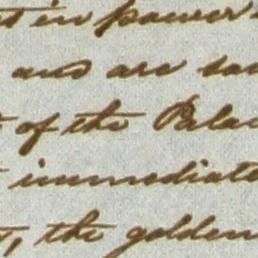 in power
and are
of the Pala
immediate
the golden